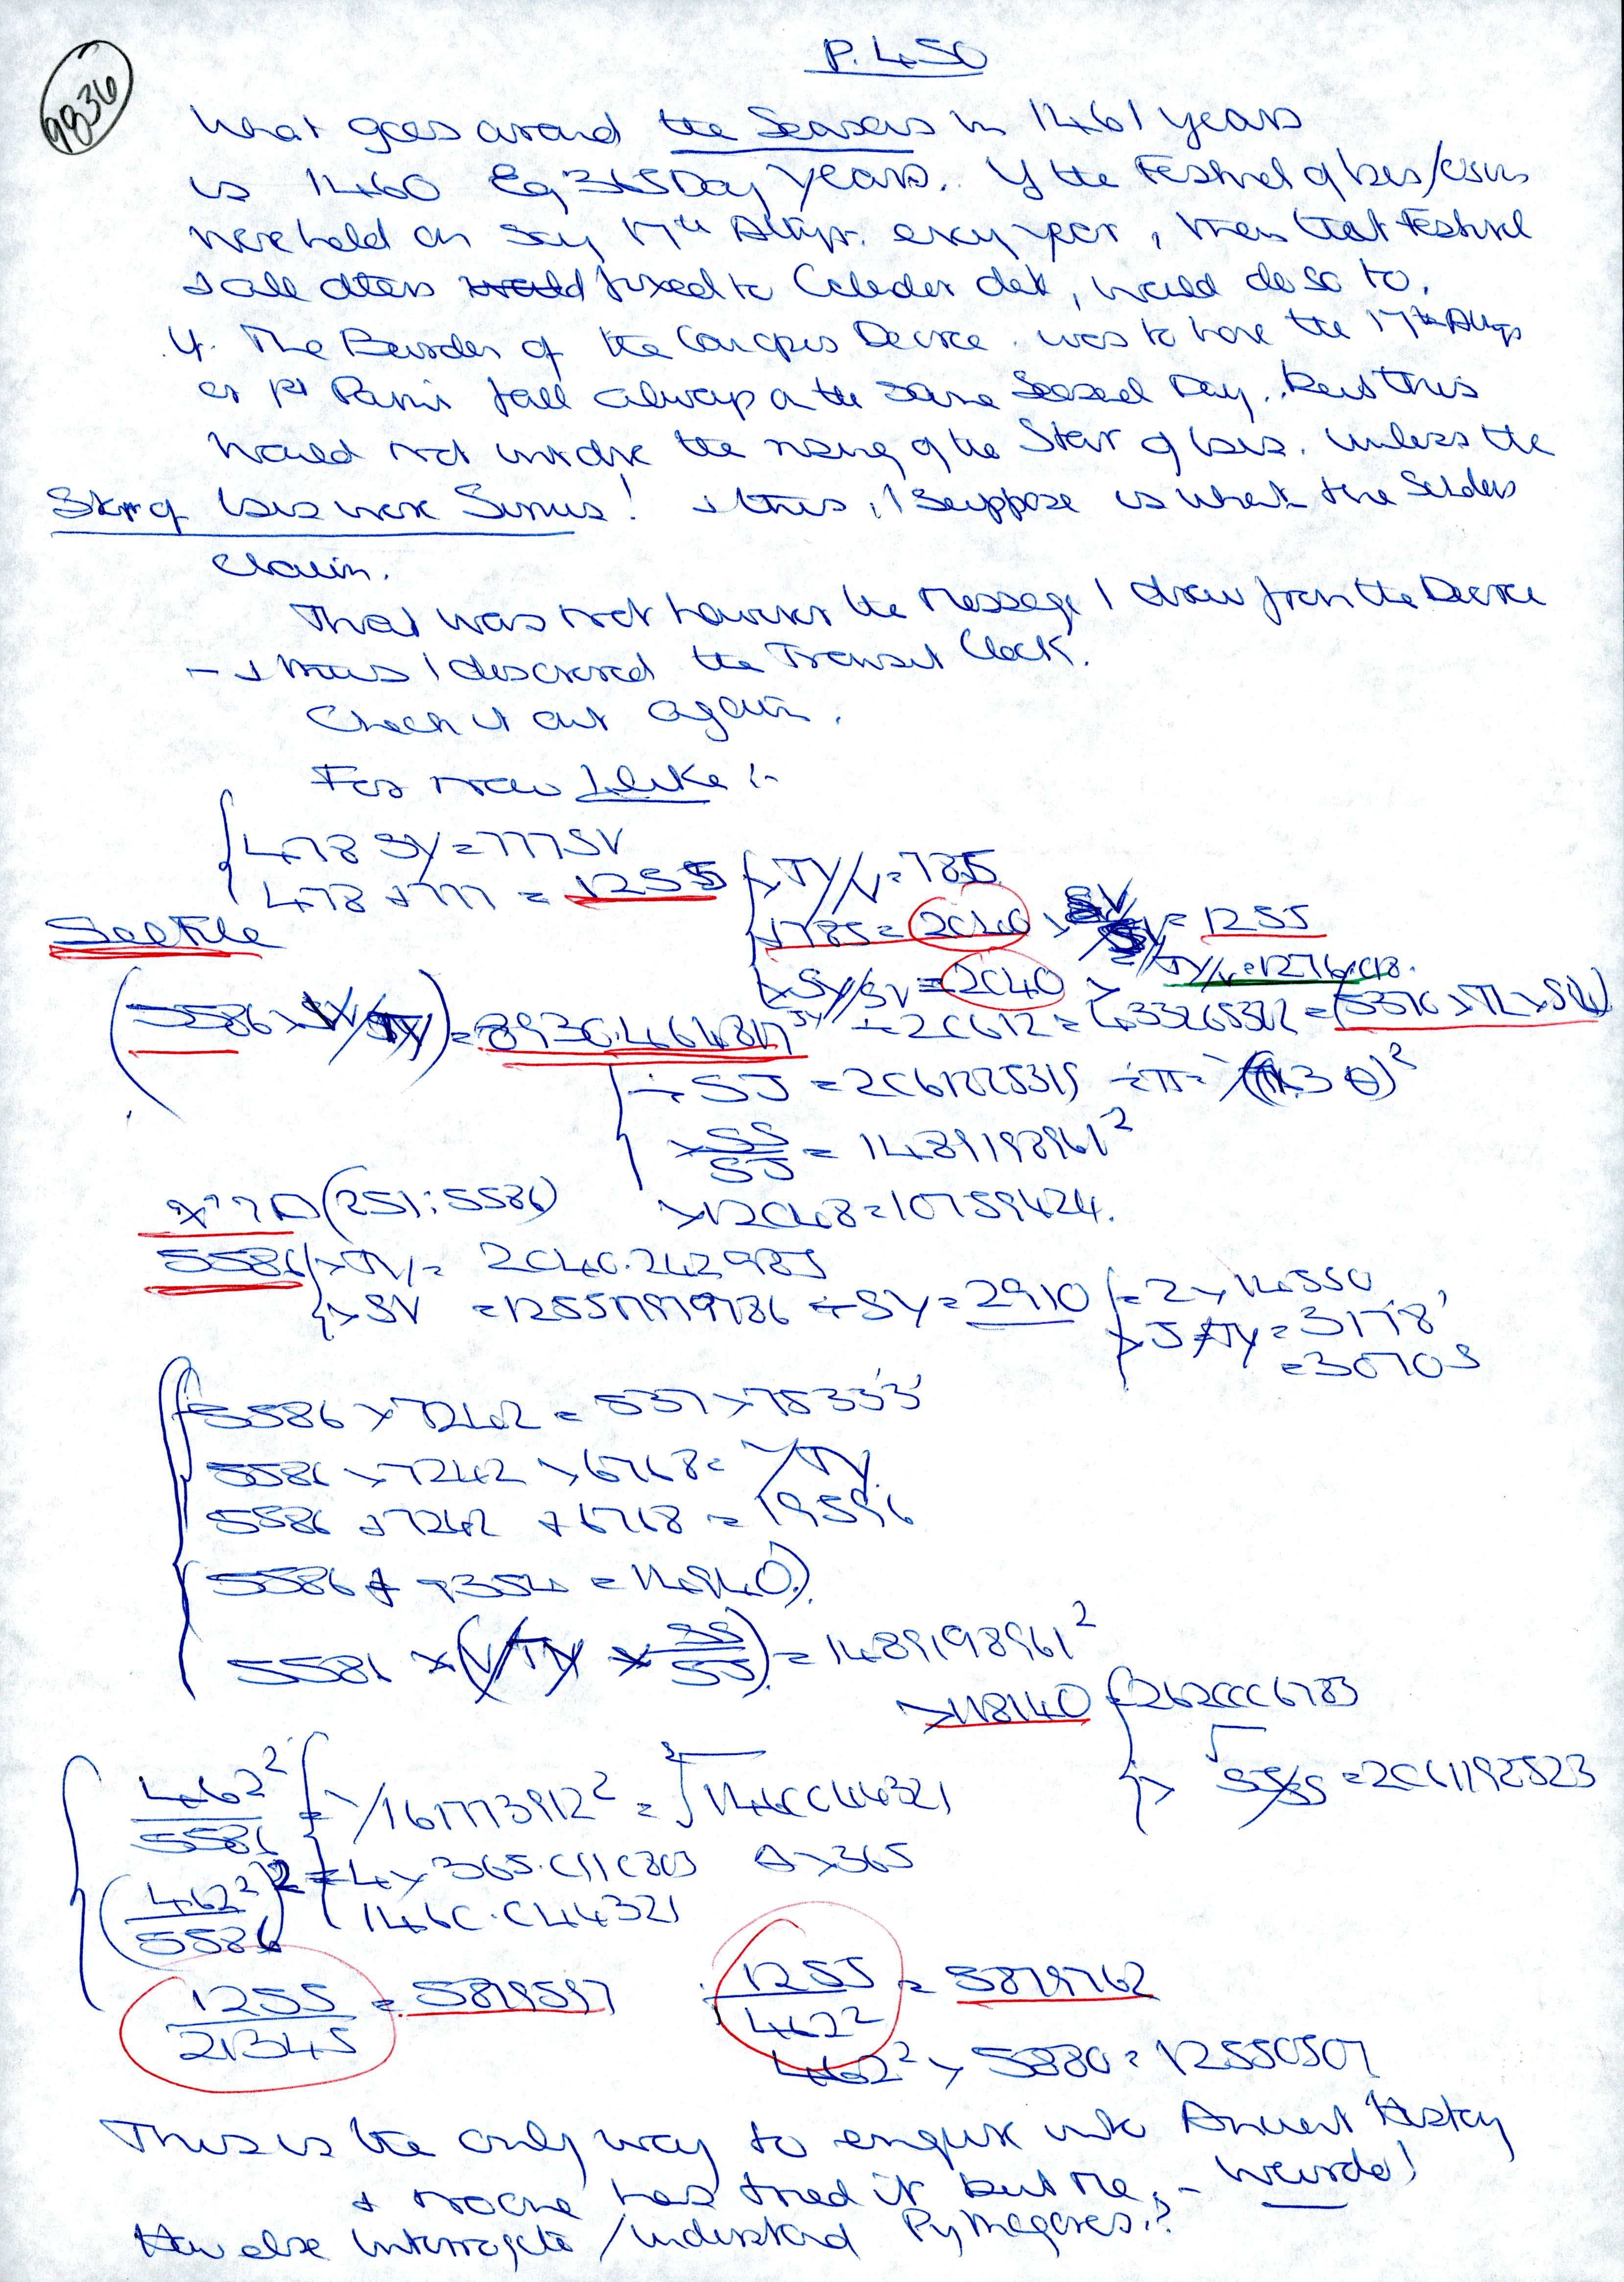 P.450
9836
What goes around the Seasons in 1461 years
is 1460 Eg 365 Day Years. If the Festival of Isis/
were held on say 17th Athyr. every year, then that Festival
& all others would fixed to Calender date, would do so to.
If. The Burden of the Canopus Decree. was to have the 17th Athyr
or 1st Payni fall always on the same Seasonal Day.. But this
would not involve the rising of the Star of Isis. Unless the
Star of Isis were Sirius! & this, I suppose is what the
claim.
That was not however the Message I drew from the Decree
- & thus I discovered the Transit Clock.
Check it out again.
For now I like :-
478 SY = 777 SV
478 + 777 = 1255
x TY/V = 785
+ 785 = 2040
= 1255
TY/V = 1276.018.
x SY/SV = 2040
(5586 x V/TY) = 8930.464817
÷ 20612 = 433265312 =
÷ SJ = 2061225315 ÷ π =
x SS/SJ = 1489198961²
x 12048 = 10759424.
(251:5586)
5586 x TY = 2040.242985
x SV = 12557979786 ÷ SY = 2910
= 2 x 14550
x J/TY = 3178'
= 30709
5586 x 7242 = 537 x 75333'
5586 x 7242 x 6768 = TY
5586 + 7242 + 6768 = 19596
5586 + 9354 = 14940.)
5586 x (V/TY x SS/SJ) = 1489198961²
x 118140 = 2620006783
SJ/SS = 2061192523
462²/5586 = 1/161773912² = 1460044321
(462²/5586)² = 4 x 365.0110803 x 365
1460.044321
1255/21345 = 5879597
1255/462² = 5879762
462² x 5880 = 12550507
This is the only way to enquire into Ancient History
& no one has tried it but me, - weirdo!
How else interrogate / understand Pythagoras.?